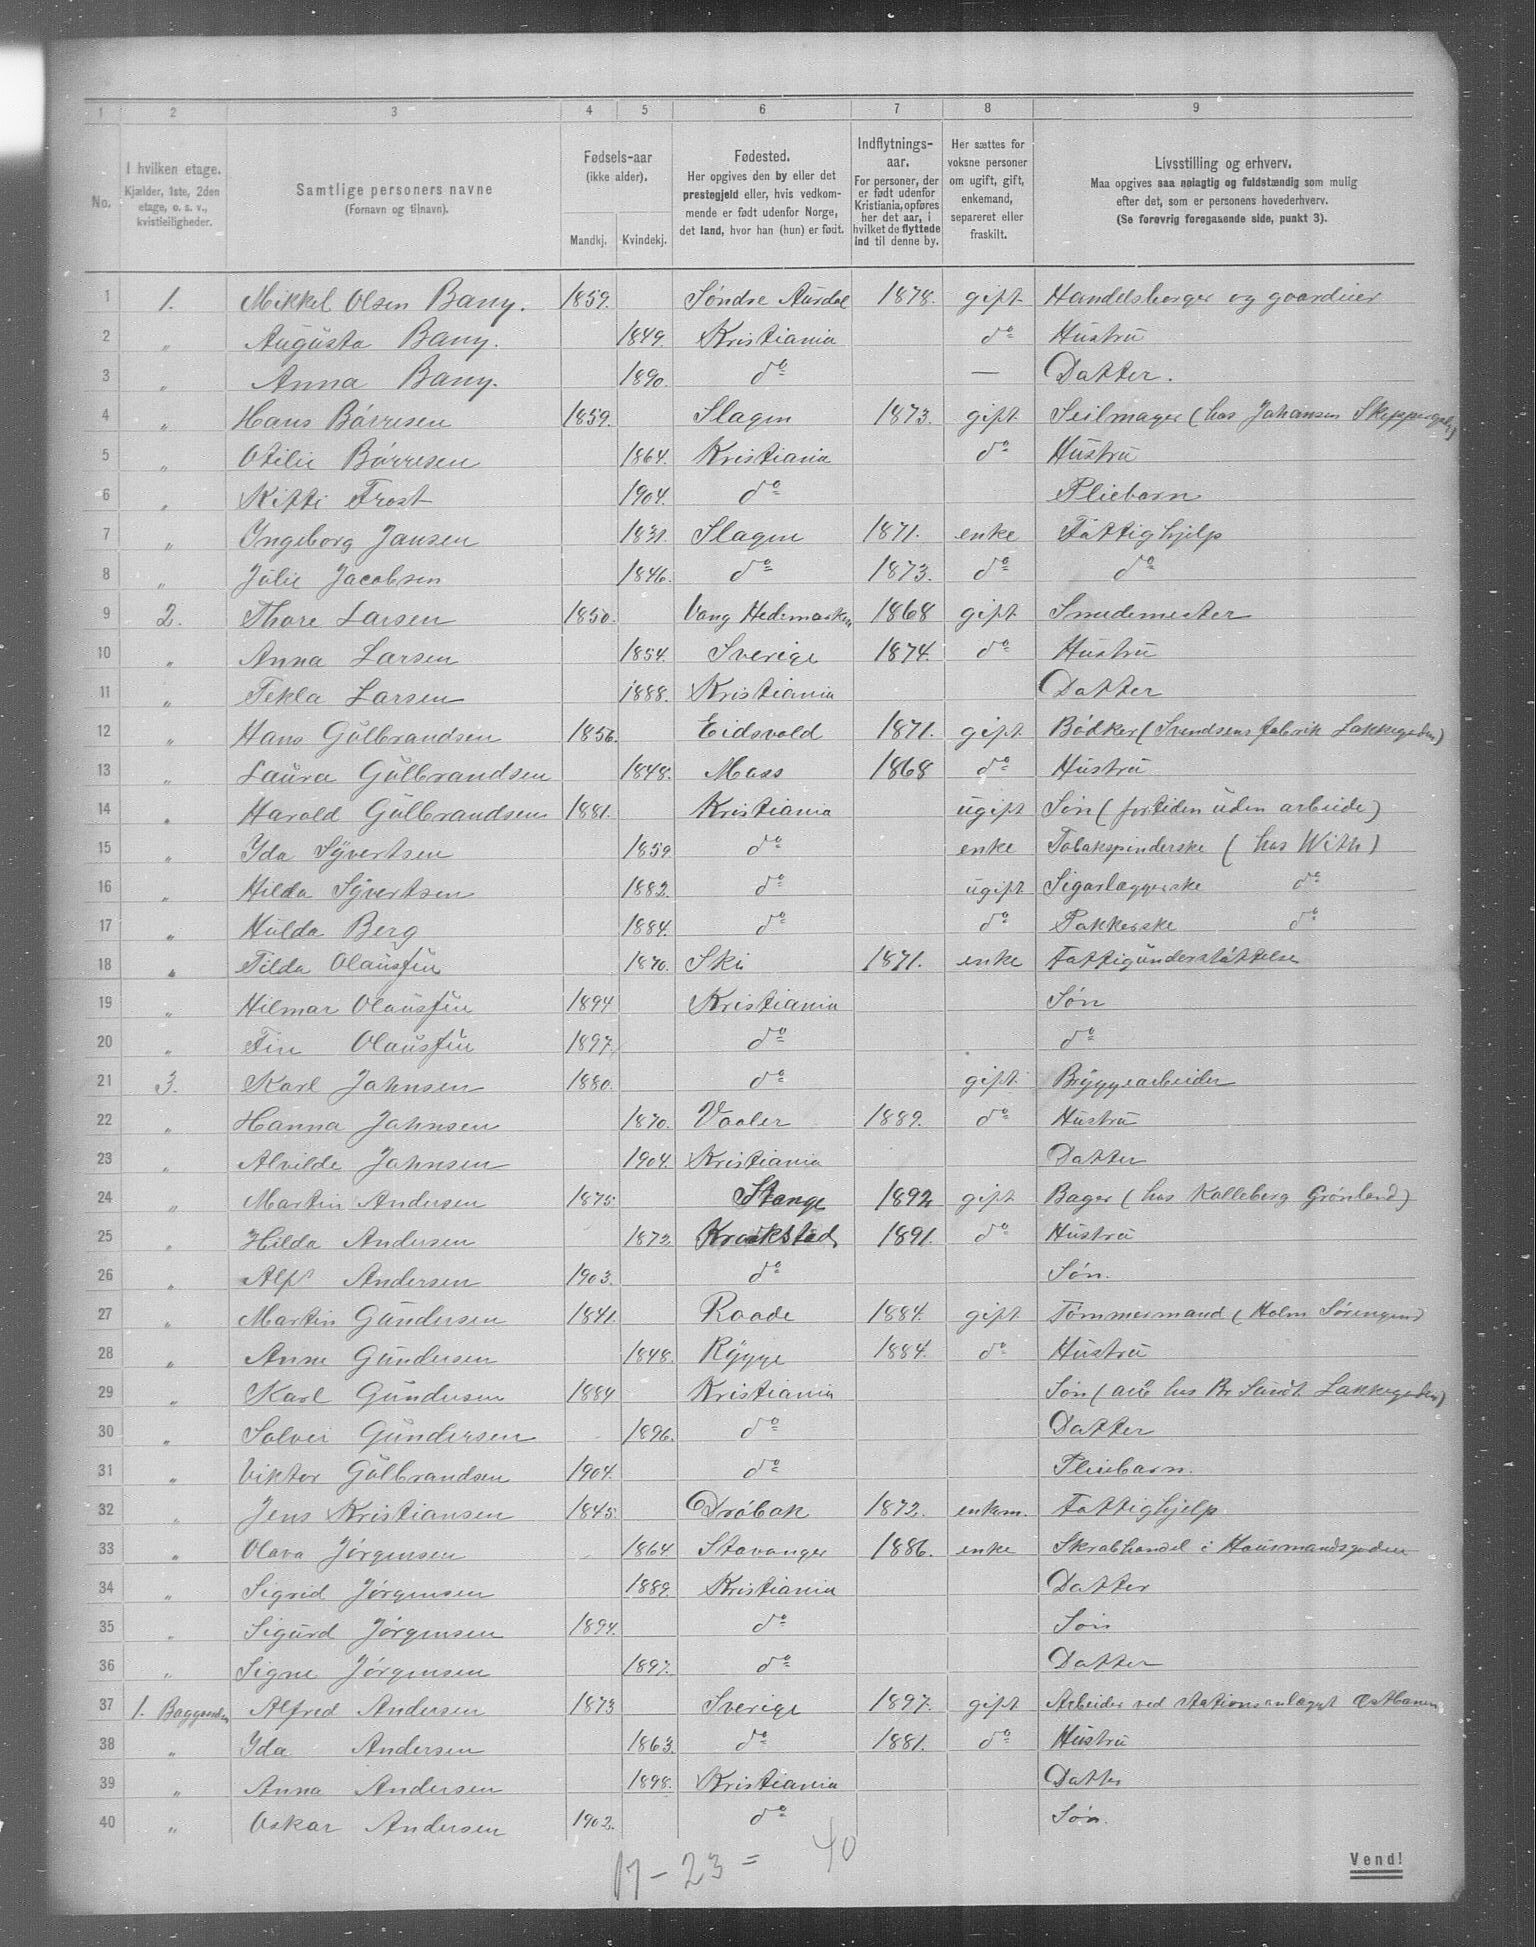 1 2 3 4 5 6 7 8 9
No. I hvilken etage. Kjælder, 1ste, 2den etage, o. s. v., kvistleiligheder. Samtlige personers navne (Fornavn og tilnavn). Fødsels-aar (ikke alder). Mandkj. Kvindekj. Fødested. Her opgives den by eller det prestegjeld eller, hvis vedkommende er født udenfor Norge, det land, hvor han (hun) er født. Indflytnings-aar. For personer, der er født udenfor Kristiania, opføres her det aar, i hvilket de flyttede ind til denne by. Her sættes for voksne personer om ugift, gift, enkemand, separeret eller fraskilt. Livsstilling og erhverv. Maa opgives saa nøiagtig og fuldstændig som mulig efter det, som er personens hovederhverv. (Se forøvrig foregaaende side, punkt 3).
1 1. Mikkel Olsen Bany. 1859. Søndre Aurdal 1878. gift Handelsborger og gaardeier
2 " Augusta Bany. 1849. Kristiania do Hustru
3 " Anna Bany. 1890. do — Datter.
4 " Hans Børresen 1859. Slagen 1873. gift Seilmager (hos Johansen Skippergaden)
5 " Otilie Børresen 1864. Kristiania do Hustru
6 " Kitti Frost 1904. do Pliebarn
7 " Ingeborg Jansen 1831. Slagen 1871. enke Fattighjelp
8 " Julie Jacobsen 1846. do 1873. do do
9 2. Thore Larsen 1850. Vang Hedemarken 1868 gift Smedemester
10 " Anna Larsen 1854. Sverige 1874. do Hustru
11 " Tekla Larsen 1888. Kristiania Datter
12 " Hans Gulbrandsen 1856. Eidsvold 1871. gift Bødker (Svendsens fabrik Lakkegaden)
13 " Laura Gulbrandsen 1848. Moss 1868 do Hustru
14 " Harald Gulbrandsen 1881. Kristiania ugift Søn (fortiden uden arbeide)
15 " Ida Syvertsen 1859 do enke Tobakspinderske (hos With)
16 " Hilda Syvertsen 1882. do ugift Sigarlæggerske do
17 " Hulda Berg 1884. do do Pakkerske do
18 " Tilda Olausfin 1870. Ski 1871. enke Fattigunderstøttelse
19 " Hilmar Olausfin 1894 Kristiania Søn
20 " Fin Olausfin 1897. do do
21 3. Karl Jahnsen 1880. do gift Bryggearbeider
22 " Hanna Jahnsen 1870. Vaaler 1889. do Hustru
23 " Alvilde Jahnsen 1904. Kristiania Datter
24 " Martin Andersen 1875. Stange 1892 gift Bager (hos Kolleberg Grønland)
25 " Hilda Andersen 1872. Kraakstad 1891. do Hustru
26 " Alf Andersen 1903. do Søn.
27 " Martin Gundersen 1841. Raade 1884. gift Tømmermand (Holm Sørengund
28 " Anne Gundersen 1848. Rygge 1884. do Hustru
29 " Karl Gundersen 1884 Kristiania Søn (hos Lakkegaden)
30 " Solvei Gundersen 1896. do Datter
31 " Viktor Gulbrandsen 1904. do Pliebarn.
32 " Jens Kristiansen 1845. Drøbak 1872. enkem. Fattighjelp
33 " Olava Jørgensen 1864 Stavanger 1886. enke Skrabhandel i Hausmandsgaden
34 " Sigrid Jørgensen 1889. Kristiania Datter
35 " Sigurd Jørgensen 1894. do Søn
36 " Signe Jørgensen 1897. do Datter
37 1. Baggaarden Alfred Andersen 1873 Sverige 1897. gift Arbeider ved stationsanlægget Østbanen
38 " Ida Andersen 1863. do 1881. do Hustru
39 " Anna Andersen 1898. Kristiania Datter
40 " Oskar Andersen 1902. do Søn.
17 - 23 = 40
Vend!